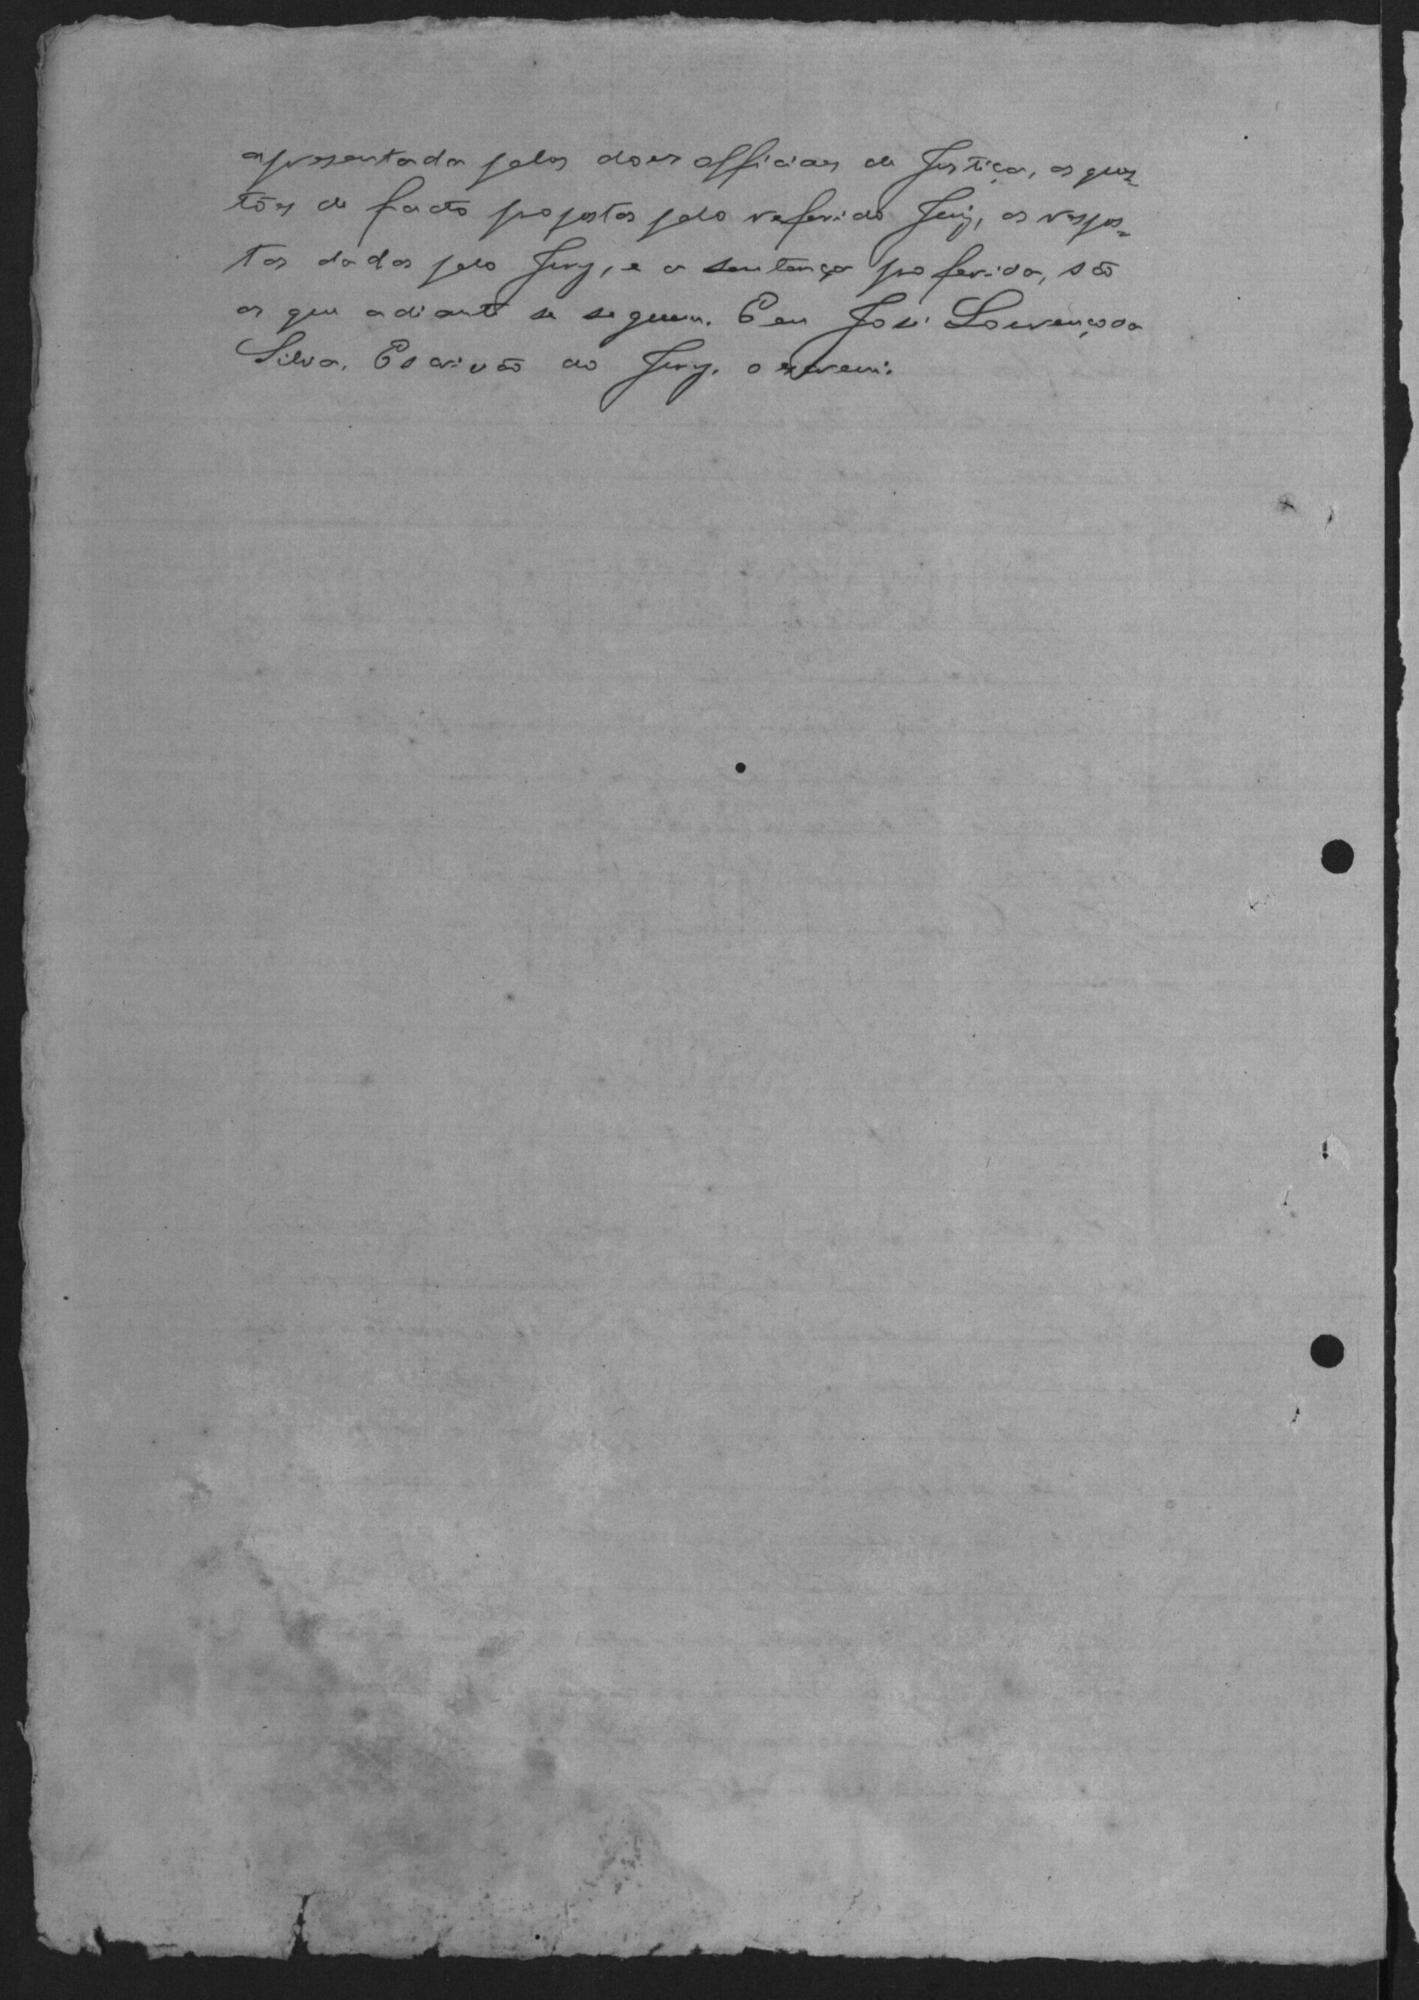 apresentada pelos dois officiaes de Justiça, as ques-
tões de facto propostas pelo referido Juiz, as respos-
tas dadas pelo Jury, e a sentença proferida, são
as que adiante se seguem. E eu José Lourenço da
Silva, Escrivão do Jury, o escrevi.